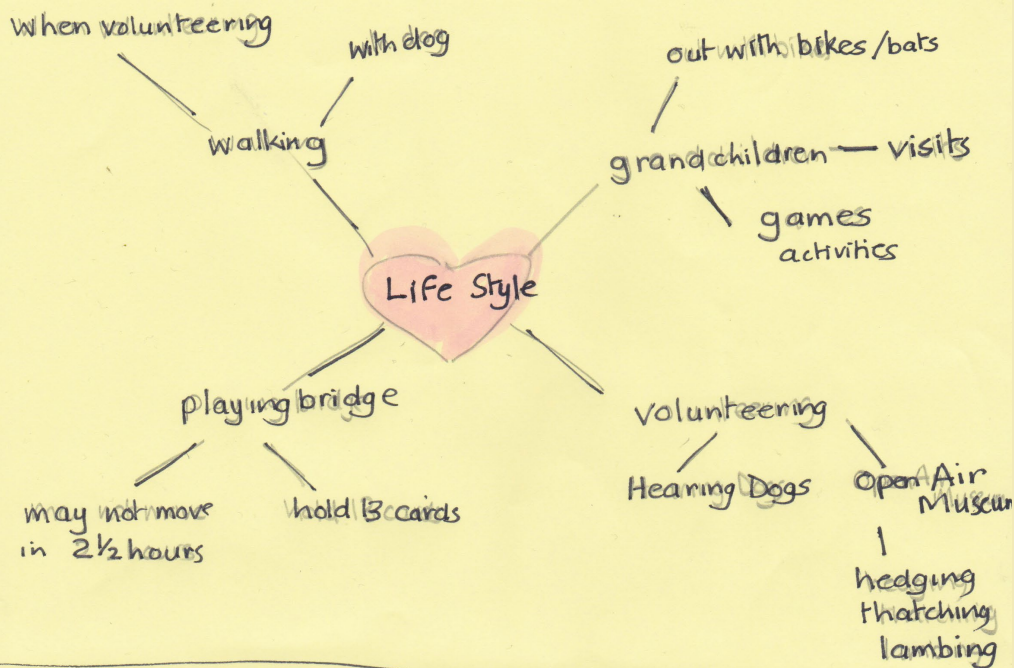 When volunteering
with dog
walking
out with bikes/bats
grandchildren
visits
games
activities
Life Style
playing bridge
may not move
in 2½ hours
hold 13 cards
volunteering
Hearing Dogs
Open Air
Museum
hedging
thatching
lambing